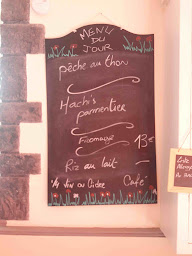 MENU
DU
JOUR
pêche au thon
Hachis
parmentier
Fromage
13€
Riz au lait
1/4 Vin ou Cidre
Café